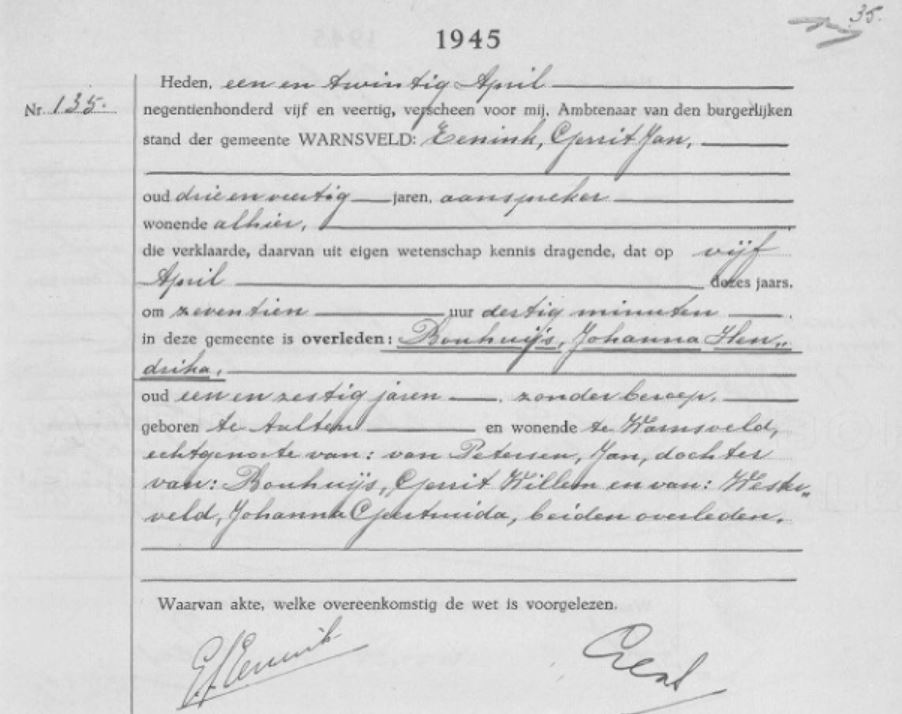 35.
1945
Nr. 135.
Heden, een en twintig April
negentienhonderd vijf en veertig, verscheen voor mij, Ambtenaar van den burgerlijken
stand der gemeente WARNSVELD: Eenink, Gerrit Jan,
oud drie en veertig jaren, aanspreker
wonende alhier,
die verklaarde, daarvan uit eigen wetenschap kennis dragende, dat op vijf
April dezes jaars,
om zeventien uur dertig minuten
in deze gemeente is overleden: Bouhuijs, Johanna Hen„
drika,
oud een en zestig jaren , zonder beroep,
geboren te Aalten en wonende te Warnsveld,
echtgenoote van: van Petersen, Jan, dochter
van: Bouhuijs, Gerrit Willem en van: Weste„
veld, Johanna Geertruida, beiden overleden.
Waarvan akte, welke overeenkomstig de wet is voorgelezen.
GJEenink